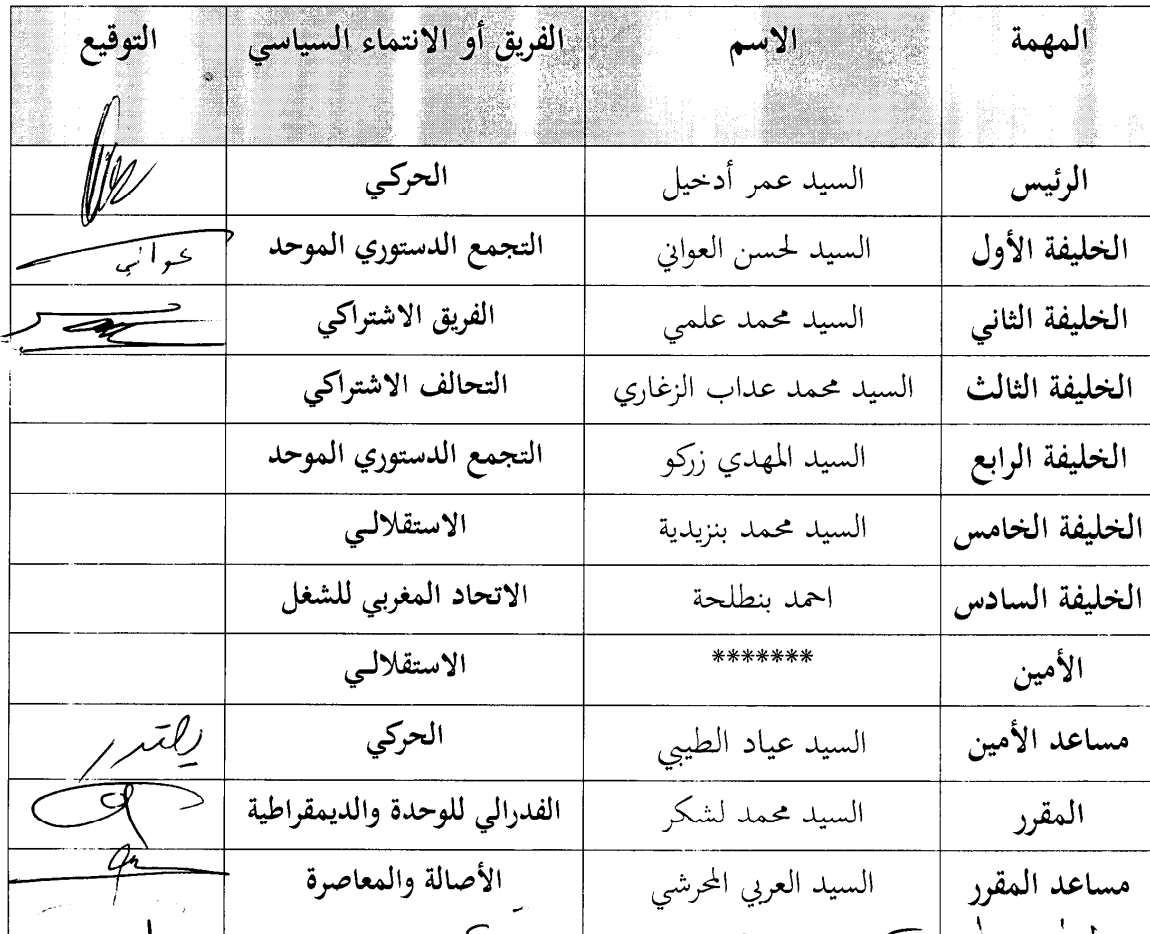 المهمة الاسم الفريق أو الانتماء السياسي التوقيع
الرئيس السيد عمر أدخيل الحركي
الخليفة الأول السيد لحسن العواني التجمع الدستوري الموحد عواني
الخليفة الثاني السيد محمد علمي الفريق الاشتراكي
الخليفة الثالث السيد محمد عداب الزغاري التحالف الاشتراكي
الخليفة الرابع السيد المهدي زركو التجمع الدستوري الموحد
الخليفة الخامس السيد محمد بنزيدية الاستقلالي
الخليفة السادس احمد بنطلحة الاتحاد المغربي للشغل
الأمين ******* الاستقلالي
مساعد الأمين السيد عياد الطيبي الحركي
المقرر السيد محمد لشكر الفدرالي للوحدة والديمقراطية
مساعد المقرر السيد العربي المحرشي الأصالة والمعاصرة